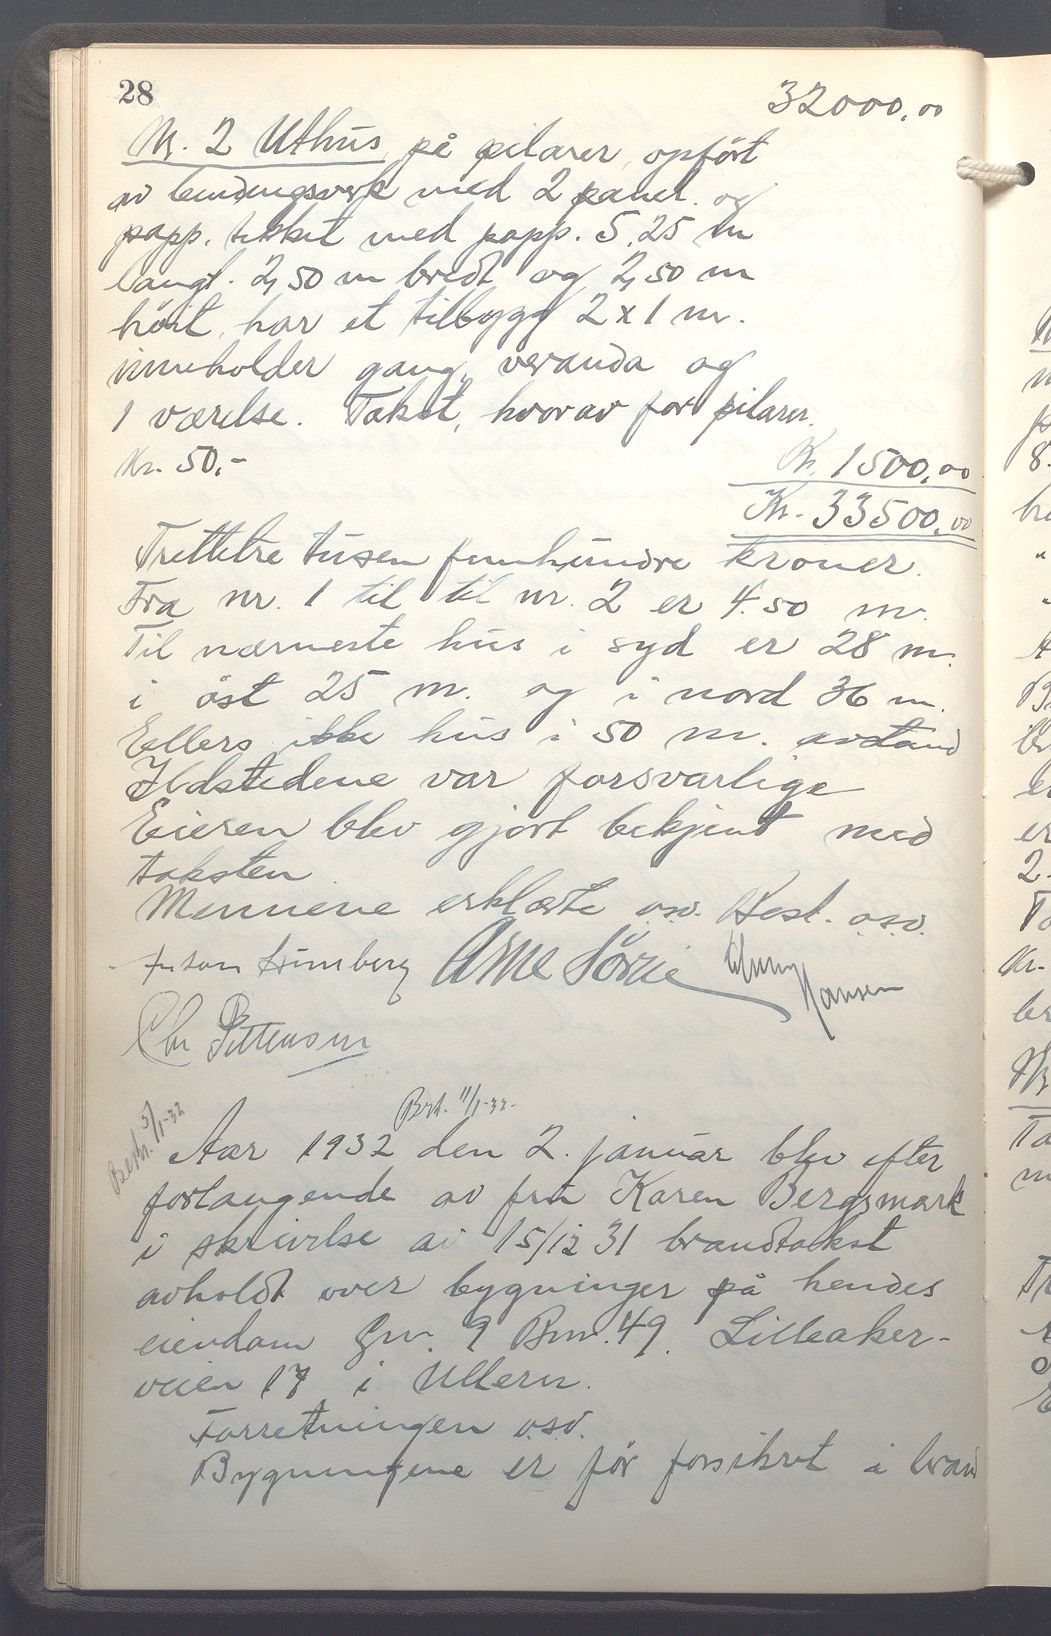 28
32000,00
Nr. 2 Uthus på pilarer, opført
av bindingsverk med 2 panel. og
papp. tekket med papp. 5,25 m
langt. 2,50 m bredt og 2,50 m
höit, har et tilbygg 2 x 1 m.
inneholder gang, veranda og
1 værelse. Takst, hvorav for pilarer.
Kr. 50,-
Kr. 1500,00
Kr. 33500,00
Trettitre tusen femhundre kroner.
Fra nr. 1 til til nr. 2 er 4.50 m.
Til nærmeste hus i syd er 28 m.
i öst 25 m. og i nord 36 m.
Ellers ikke hus i 50 m. avstand
Ildstedene var forsvarlige
Eieren blev gjort bekjent med
taksten.
Mennene erklærte o.s.v. Best. o.s.v.
Arne
Hansen
Chr
Bestr. 5/1-32
Best. 11/1-32.
Aar 1932 den 2. januar blev efter
forlangende av fru Karen Bergsmark
i skrivelse av 15/12 31 brandtakst
avholdt over bygninger på hendes
eiendom Gnr. 9 Bnr. 49. Lilleaker-
veien 17 i Ullern.
Forretningen o.s.v.
Bygningene er för forsikret i brand